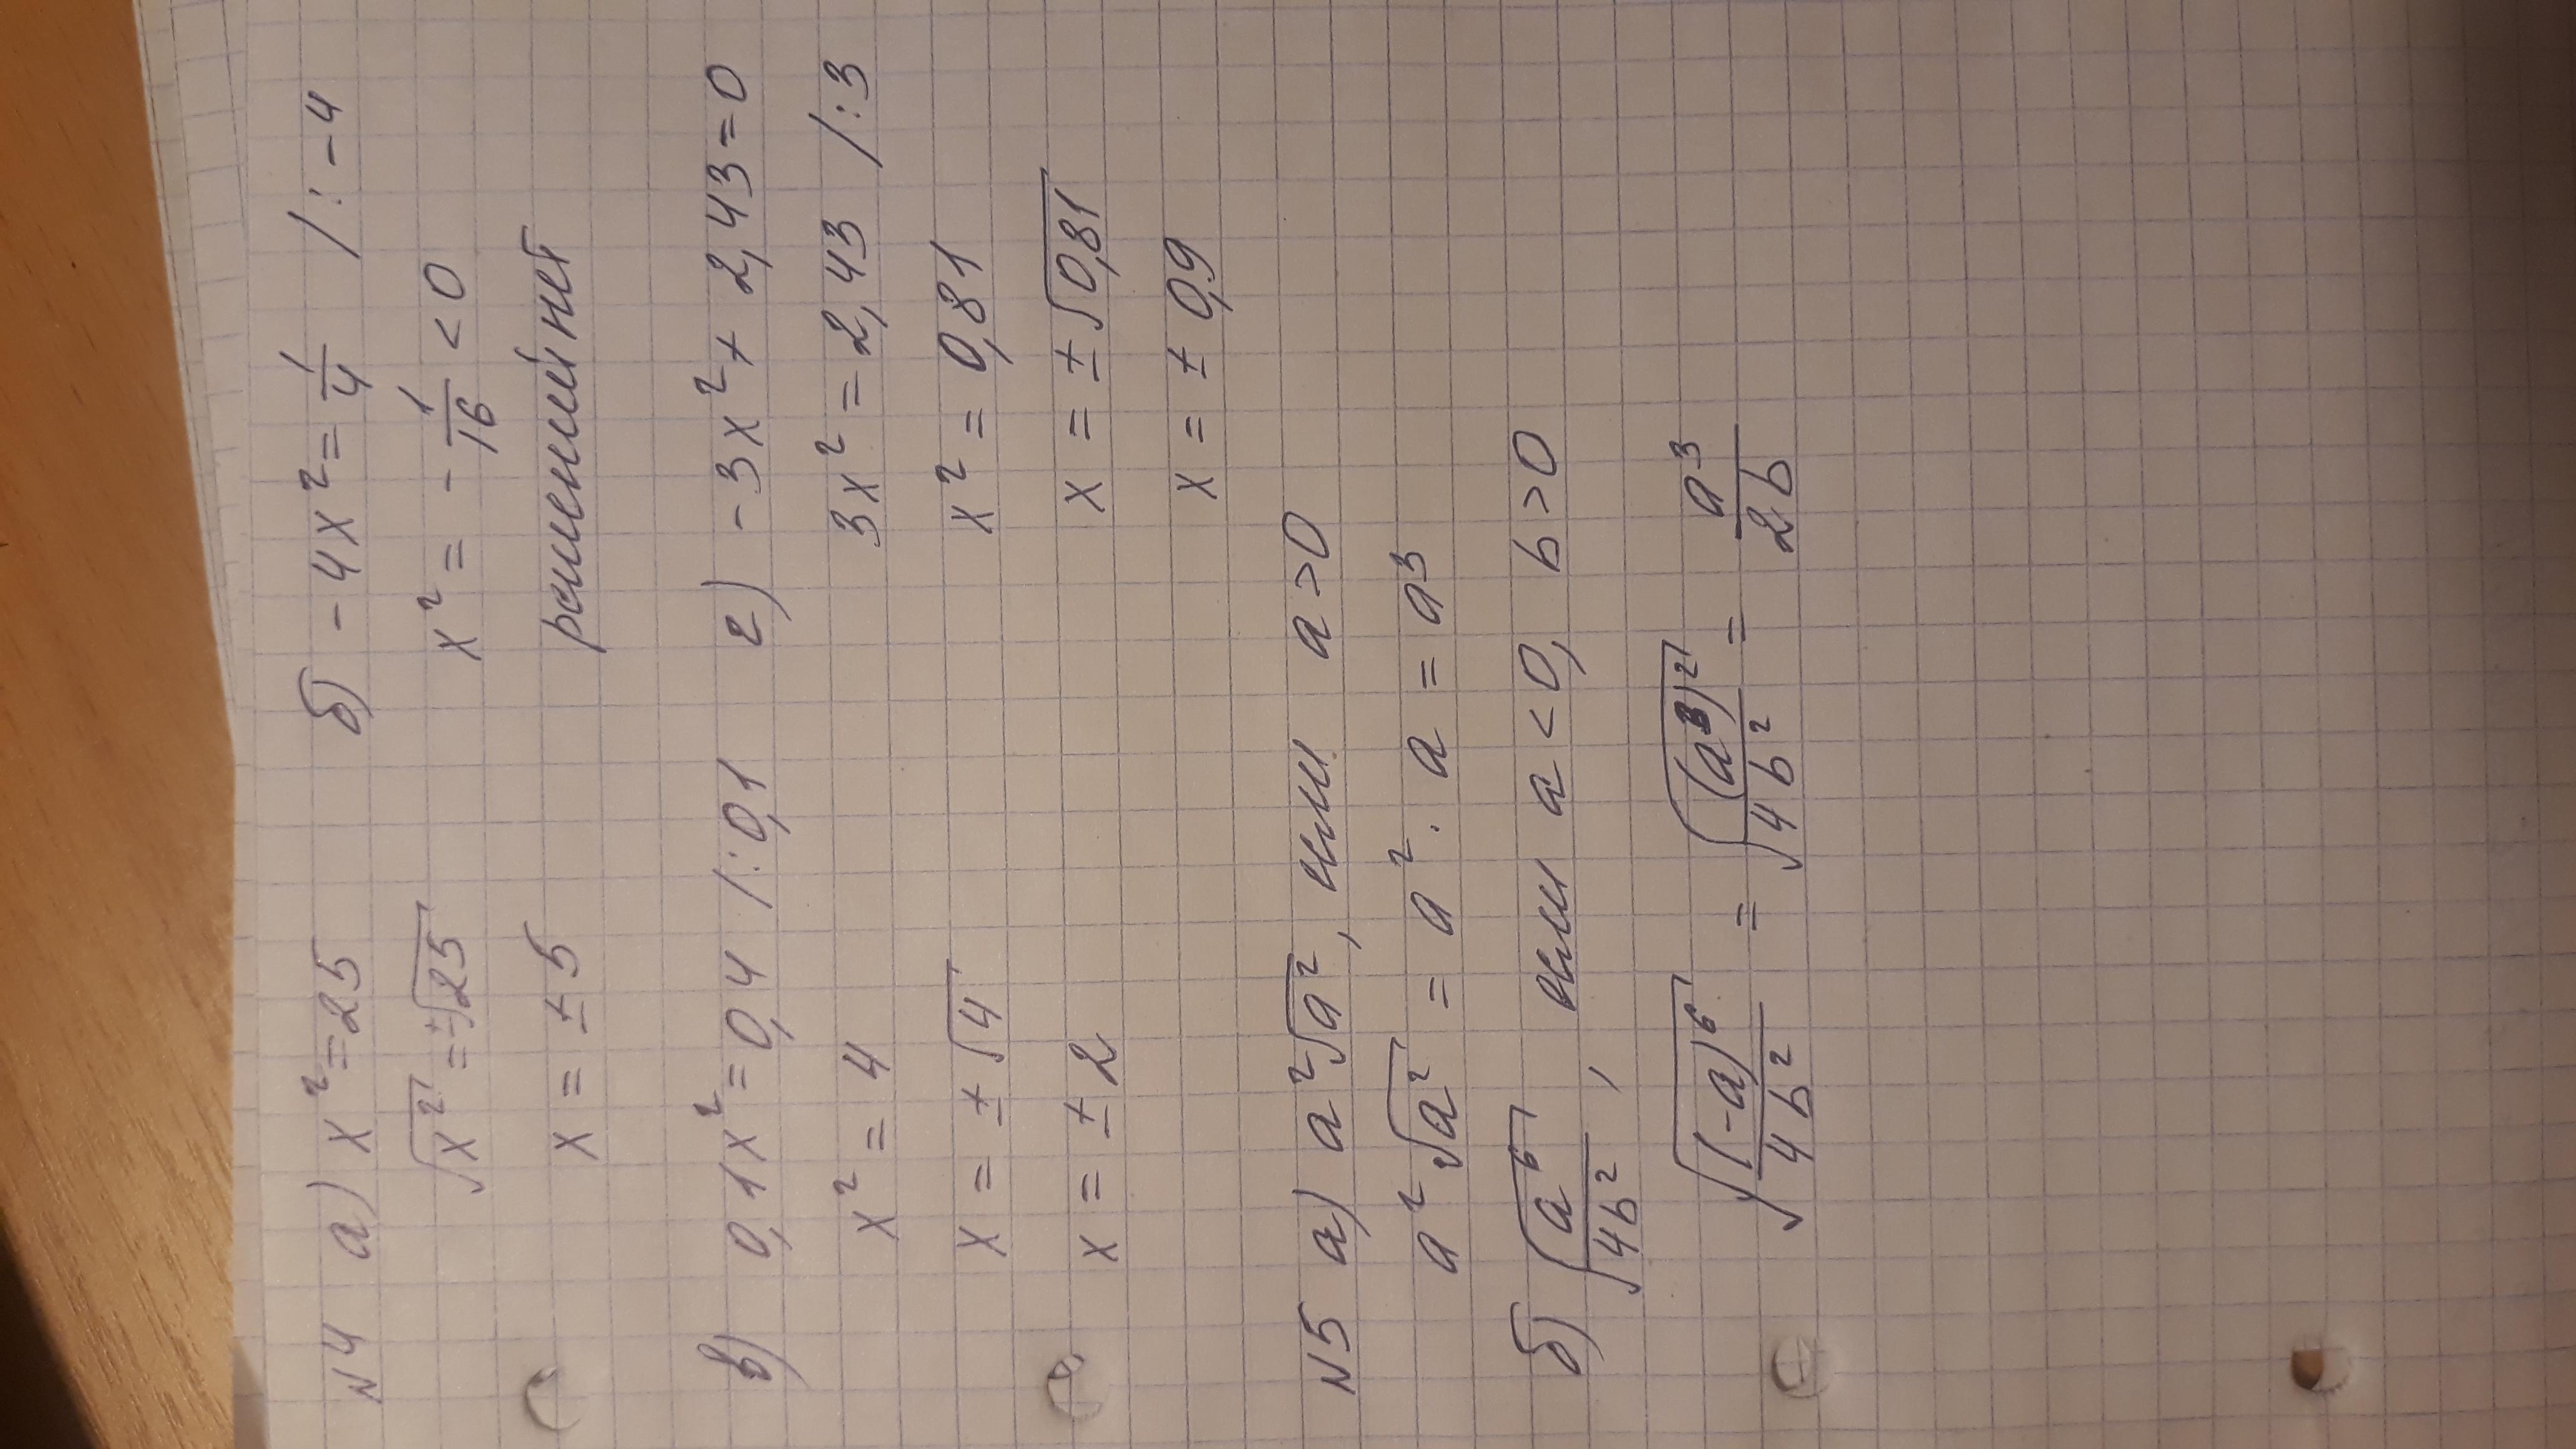 N4 а) x² = 25
√x² = ±√25
x = ±5
б) -4x² = 1/4 /: -4
x² = - 1/16 < 0
решений нет
в) 0,1x² = 0,4 /: 0,1
x² = 4
x = ±√4
x = ±2
г) -3x² + 2,43 = 0
3x² = 2,43 /: 3
x² = 0,81
x = ±√0,81
x = ±0,9
N5 а) a²√a², если a > 0
a²√a² = a² · a = a³
б) √(a⁶/4b²), если a < 0, b > 0
√((-a)⁶/4b²) = √((a³)²/4b²) = a³/2b